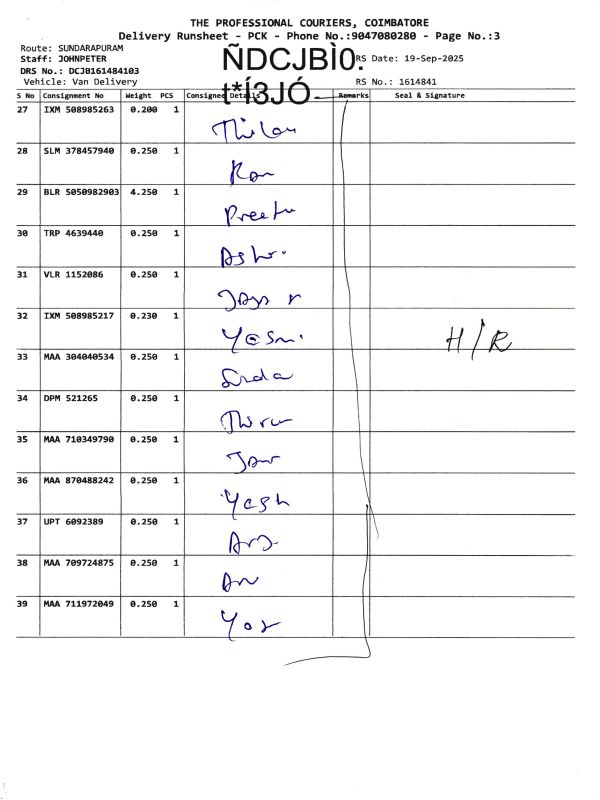 THE PROFESSIONAL COURIERS, COIMBATORE
Delivery Runsheet - PCK - Phone No.:9047080280 - Page No.:3
Route: SUNDARAPURAM
Staff: JOHNPETER
ÑDCJBÌ0.
RS Date: 19-Sep-2025
DRS No.: DCJB161484103
Vehicle: Van Delivery
t*Í3JÓ
RS No.: 1614841
S No Consignment No Weight PCS Consignee Details Remarks Seal & Signature
27 IXM 508985263 0.200 1
28 SLM 378457940 0.250 1
Ram
29 BLR 5050982903 4.250 1
Preetu
30 TRP 4639440 0.250 1
31 VLR 1152086 0.250 1
32 IXM 508985217 0.230 1
Yasmi.
H/R
33 MAA 304040534 0.250 1
34 DPM 521265 0.250 1
Thiru
35 MAA 710349790 0.250 1
36 MAA 870488242 0.250 1
Yesh
37 UPT 6092389 0.250 1
38 MAA 709724875 0.250 1
39 MAA 711972049 0.250 1